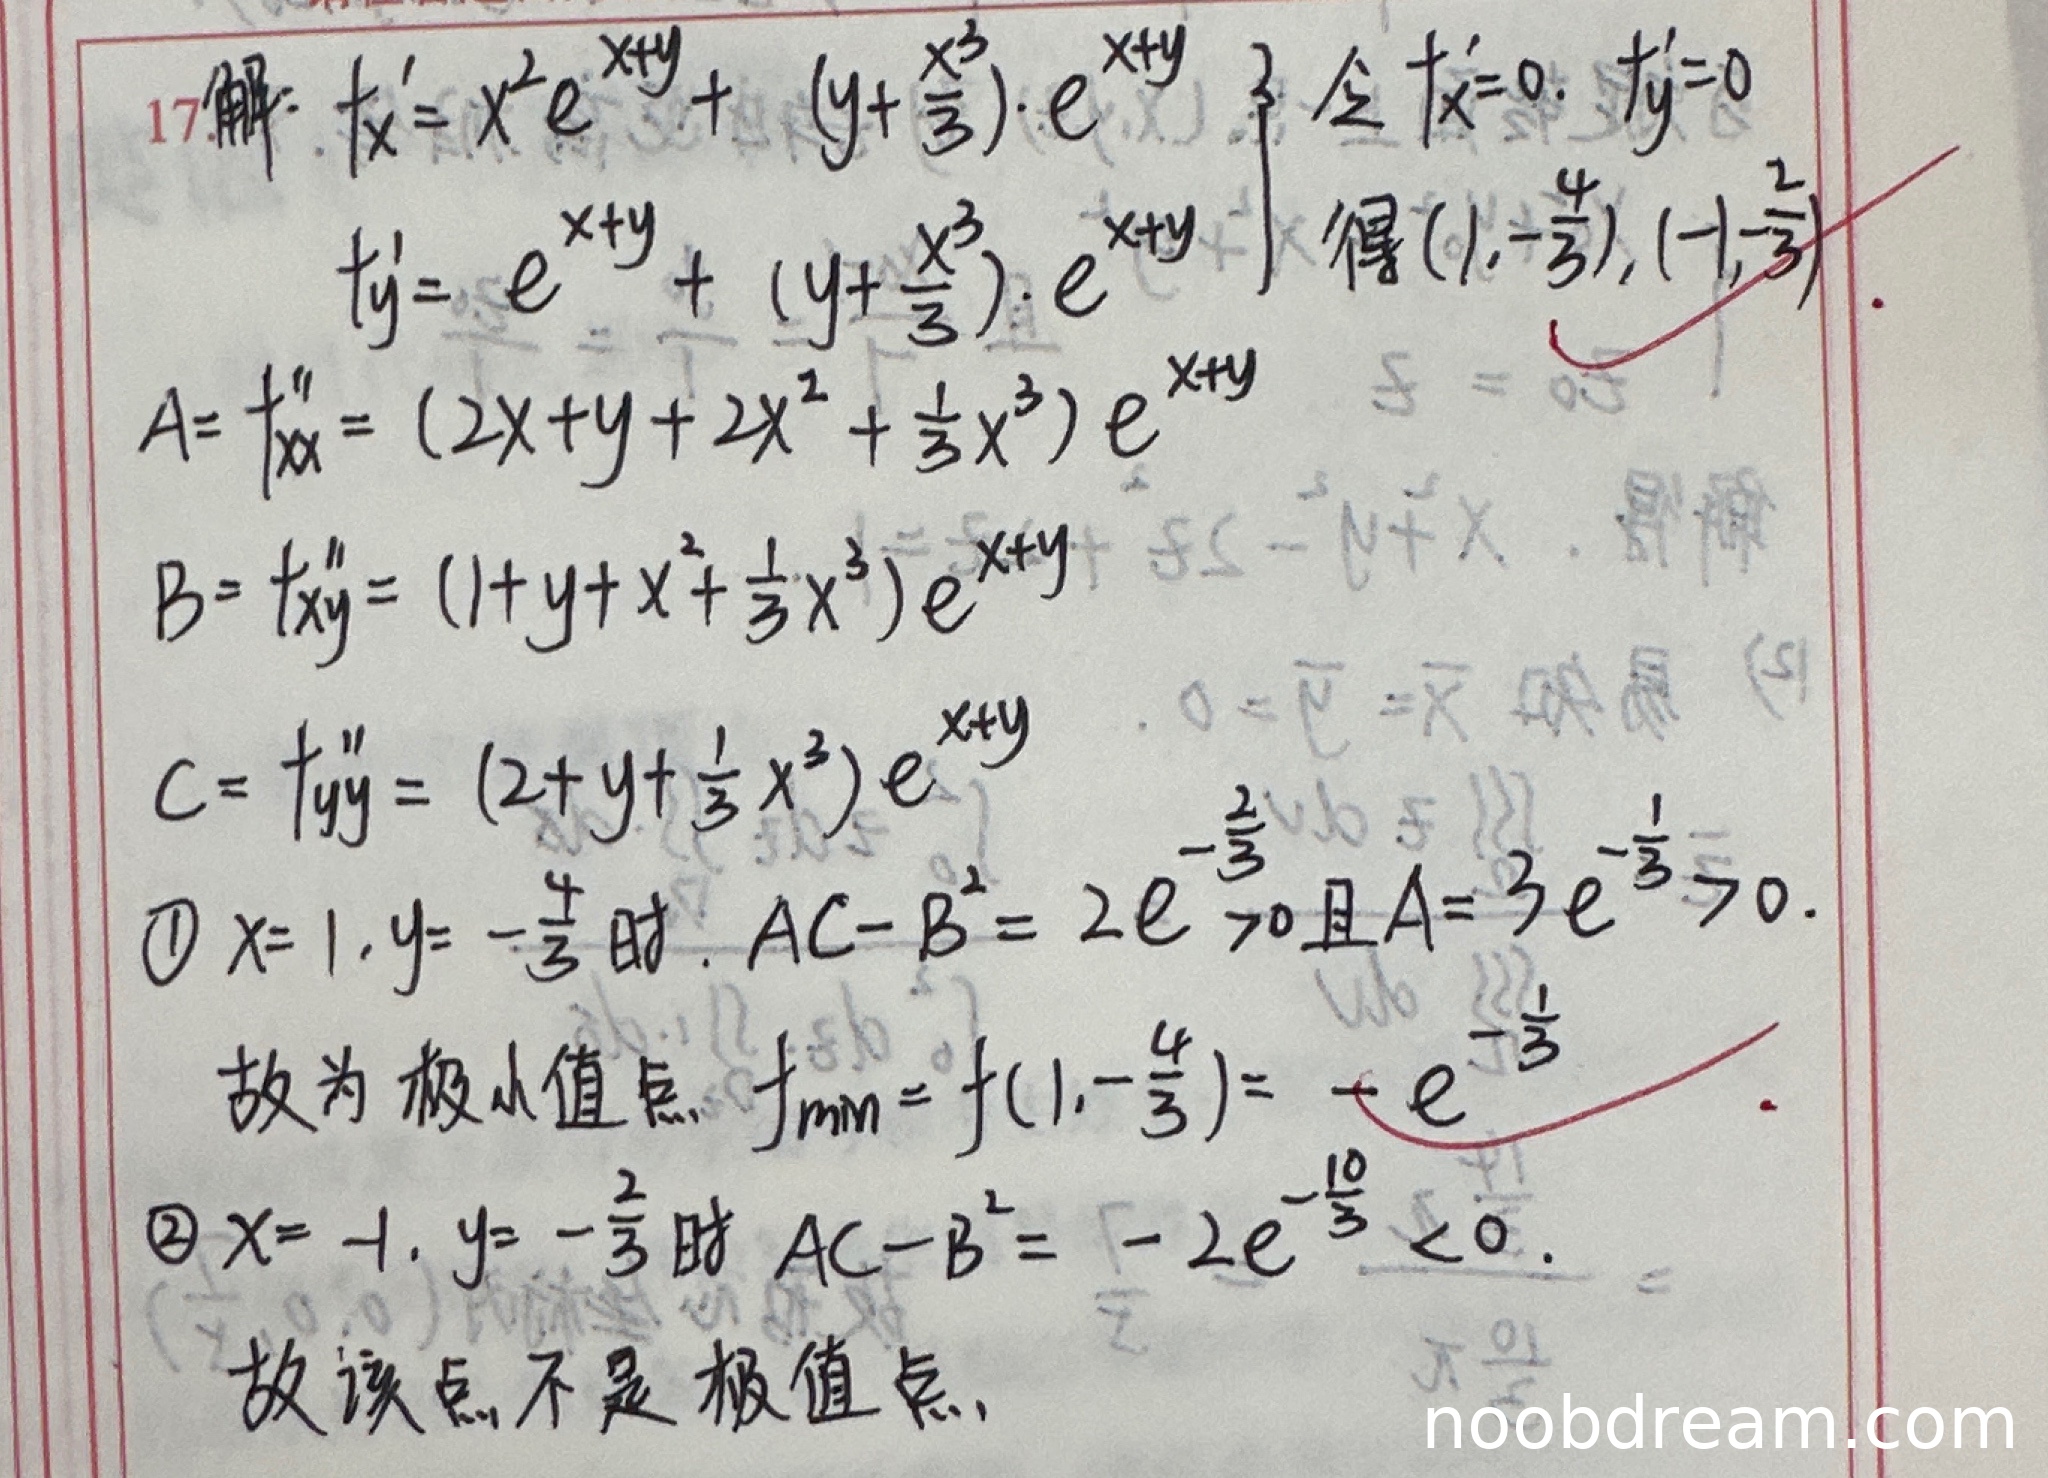 17. 解: f'x = x²e^(x+y) + (y+x³/3)·e^(x+y) } 令 f'x=0. f'y=0
f'y = e^(x+y) + (y+x³/3)·e^(x+y) 得(1,-4/3),(-1,-2/3)
A = f''xx = (2x+y+2x²+1/3x³)e^(x+y)
B = f''xy = (1+y+x²+1/3x³)e^(x+y)
C = f''yy = (2+y+1/3x³)e^(x+y)
① x=1, y=-4/3时. AC-B²=2e^(-2/3)>0且A=3e^(-1/3)>0.
故为极小值点 fmin=f(1,-4/3)=-e^(-1/3)
② x=-1. y=-2/3时 AC-B²=-2e^(-10/3)<0.
故该点不是极值点
noobdream.com